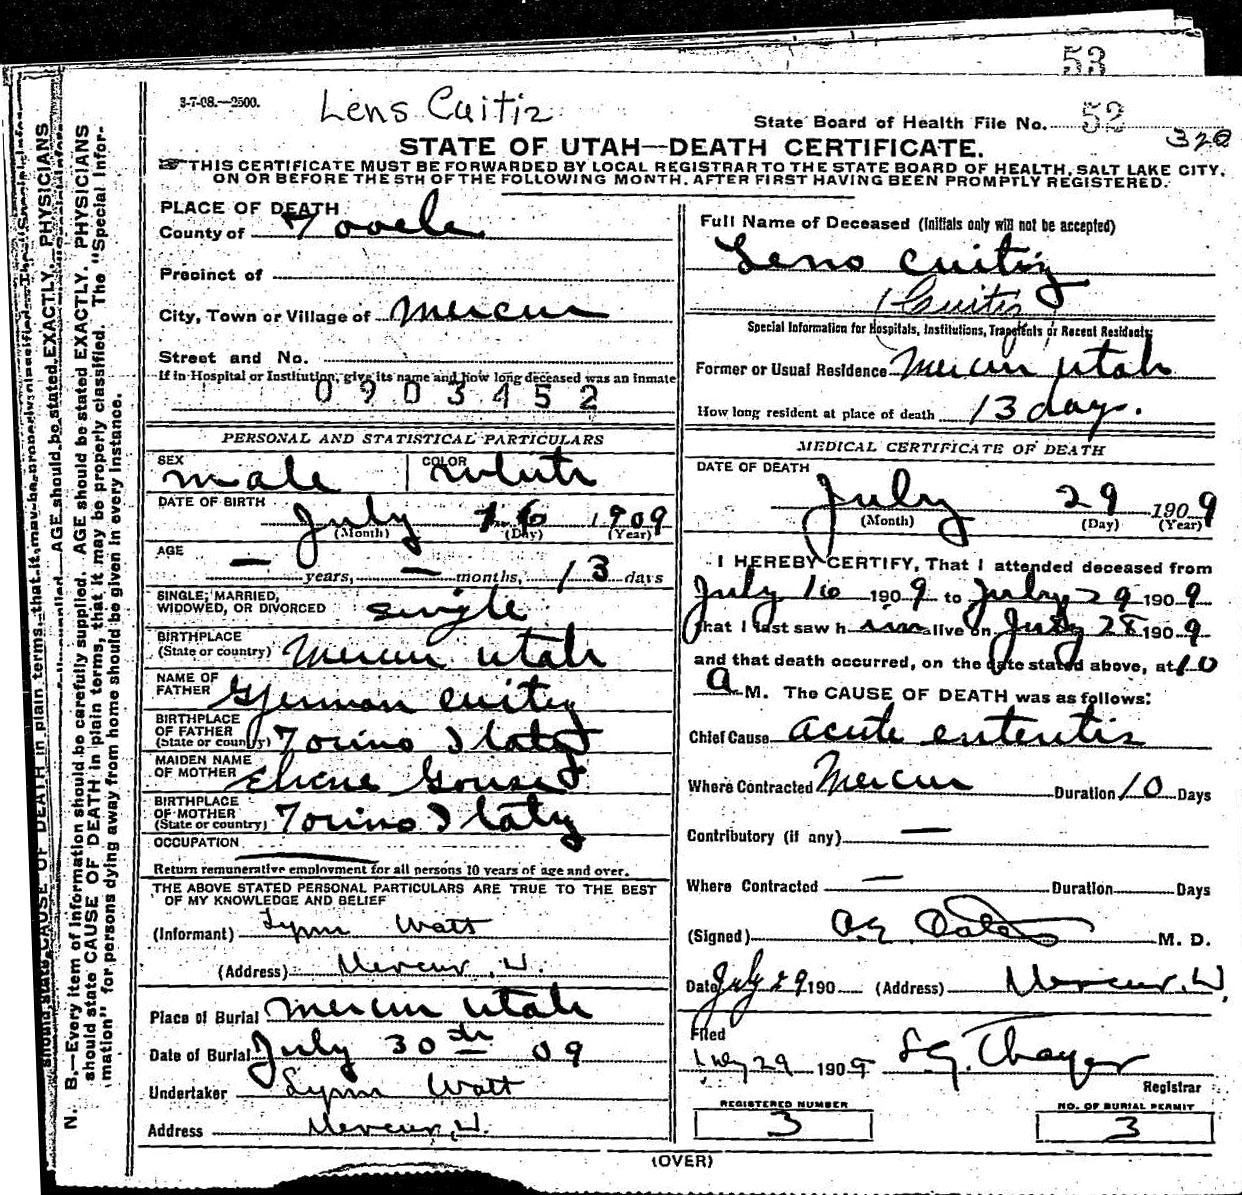 53
3-7-08.—2500.
Lens Cuitiz
State Board of Health File No. 52
320
STATE OF UTAH—DEATH CERTIFICATE.
THIS CERTIFICATE MUST BE FORWARDED BY LOCAL REGISTRAR TO THE STATE BOARD OF HEALTH, SALT LAKE CITY,
ON OR BEFORE THE 5TH OF THE FOLLOWING MONTH, AFTER FIRST HAVING BEEN PROMPTLY REGISTERED.
PLACE OF DEATH
County of Tooele
Precinct of
City, Town or Village of Mercur
Street and No.
If in Hospital or Institution, give its name and how long deceased was an inmate
0903452
PERSONAL AND STATISTICAL PARTICULARS
SEX male COLOR white
DATE OF BIRTH
July 16 1909
(Month) (Day) (Year)
AGE
— years, — months, 13 days
SINGLE, MARRIED,
WIDOWED, OR DIVORCED single
BIRTHPLACE
(State or country) Mercur Utah
NAME OF
FATHER German Cuitiz
BIRTHPLACE
OF FATHER
(State or country) Torino Itlaty
MAIDEN NAME
OF MOTHER
BIRTHPLACE
OF MOTHER
(State or country) Torino Itlaty
OCCUPATION
Return remunerative employment for all persons 10 years of age and over.
THE ABOVE STATED PERSONAL PARTICULARS ARE TRUE TO THE BEST
OF MY KNOWLEDGE AND BELIEF
(Informant) Lynn Watt
(Address) Mercur, U.
Place of Burial Mercur Utah
Date of Burial July 30th 09
Undertaker Lynn Watt
Address Mercur, U.
Full Name of Deceased (Initials only will not be accepted)
Leno Cuitiz
Special Information for Hospitals, Institutions, Transients or Recent Residents
Former or Usual Residence Mercur Utah
How long resident at place of death 13 days.
MEDICAL CERTIFICATE OF DEATH
DATE OF DEATH
July 29 1909
(Month) (Day) (Year)
I HEREBY CERTIFY, That I attended deceased from
July 16 1909 to July 29 1909
that I last saw him alive on July 28 1909
and that death occurred, on the date stated above, at 10
a M. The CAUSE OF DEATH was as follows:
Chief Cause acute enteritis
Where Contracted Mercur Duration 10 Days
Contributory (if any) —
Where Contracted — Duration Days
(Signed) M. D.
Date July 29 190 (Address) Mercur. U,
Filed
July 29 1909 Thayer
Registrar
REGISTERED NUMBER
3
NO. OF BURIAL PERMIT
3
(OVER)
N. B.—Every item of information should be carefully supplied. AGE should be stated EXACTLY. PHYSICIANS
should state CAUSE OF DEATH in plain terms, that it may be properly classified. The "Special Infor-
mation" for persons dying away from home should be given in every instance.